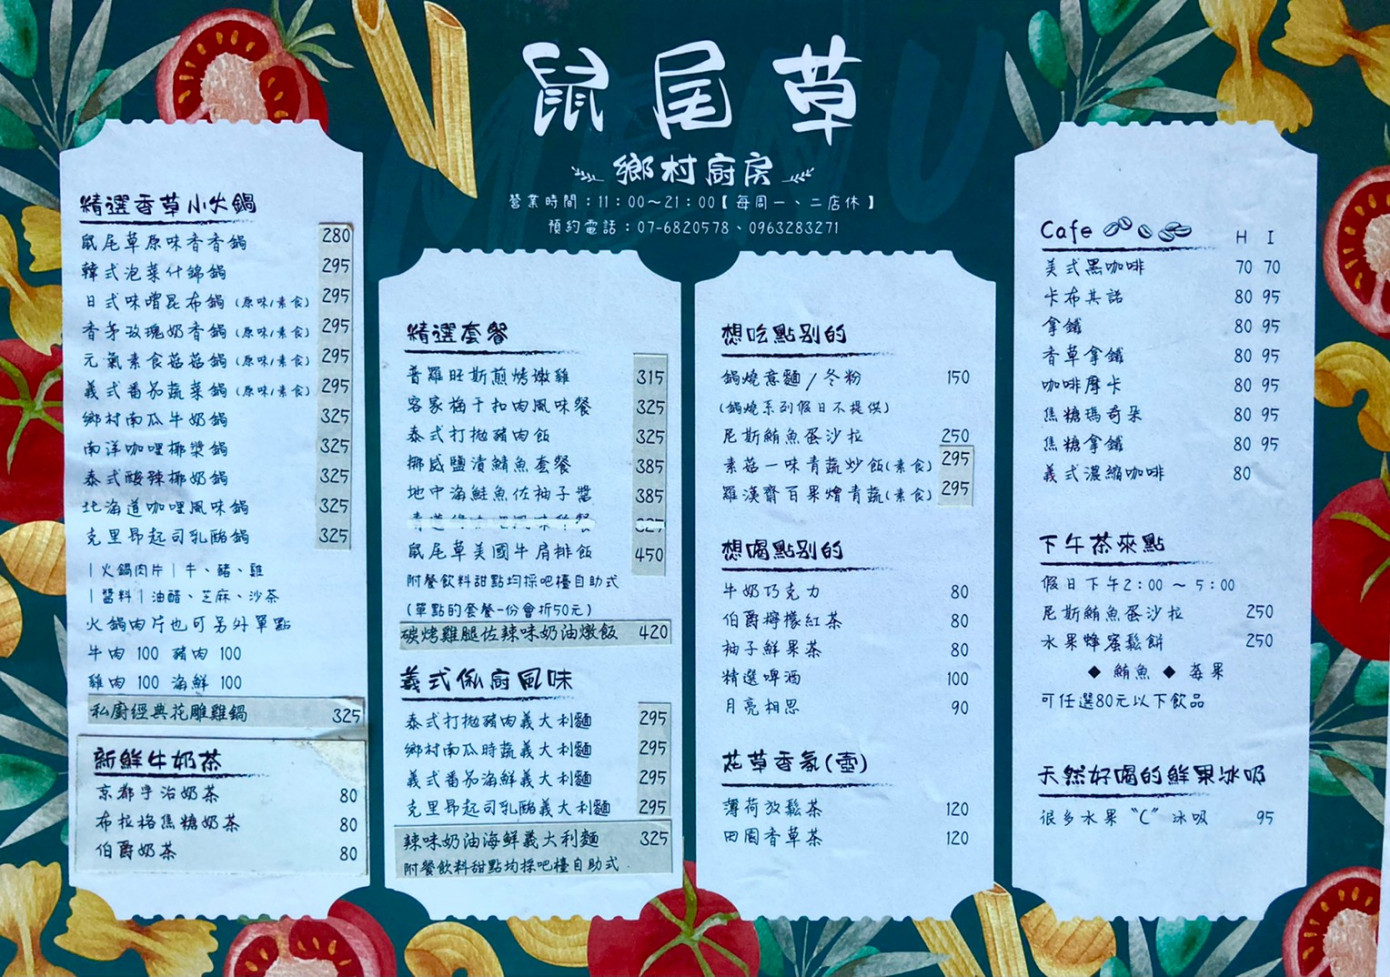 鼠尾草
鄉村廚房
營業時間：11：00～21：00【每周一、二店休】
預約電話：07-6820578、0963283271
精選香草小火鍋
鼠尾草原味香香鍋 280
韓式泡菜什錦鍋 295
日式味噌昆布鍋(原味/素食) 295
香茅玫瑰奶香鍋(原味/素食) 295
元氣素食菇菇鍋(原味/素食) 295
義式番茄蔬菜鍋(原味/素食) 295
鄉村南瓜牛奶鍋 325
南洋咖哩椰漿鍋 325
泰式酸辣椰奶鍋 325
北海道咖哩風味鍋 325
克里昂起司乳酪鍋 325
|火鍋肉片|牛、豬、雞
|醬料|油醋、芝麻、沙茶
火鍋肉片也可另外單點
牛肉 100 豬肉 100
雞肉 100 海鮮 100
私廚經典花雕雞鍋 325
新鮮牛奶茶
京都宇治奶茶 80
布拉格焦糖奶茶 80
伯爵奶茶 80
精選套餐
普羅旺斯煎烤嫩雞 315
客家梅干扣肉風味餐 325
泰式打拋豬肉飯 325
挪威鹽漬鯖魚套餐 385
地中海鮭魚佐柚子醬 385
鼠尾草美國牛肩排飯 450
附餐飲料甜點均採吧檯自助式
(單點的套餐一份會折50元)
碳烤雞腿佐辣味奶油燉飯 420
義式私廚風味
泰式打拋豬肉義大利麵 295
鄉村南瓜時蔬義大利麵 295
義式番茄海鮮義大利麵 295
克里昂起司乳酪義大利麵 295
辣味奶油海鮮義大利麵 325
附餐飲料甜點均採吧檯自助式
想吃點別的
鍋燒意麵/冬粉 150
(鍋燒系列假日不提供)
尼斯鮪魚蛋沙拉 250
素菇一味青蔬炒飯(素食) 295
羅漢齋百果燴青蔬(素食) 295
想喝點別的
牛奶巧克力 80
伯爵檸檬紅茶 80
柚子鮮果茶 80
精選啤酒 100
月亮相思 90
花草香氛(壺)
薄荷放鬆茶 120
田園香草茶 120
Cafe H I
美式黑咖啡 70 70
卡布其諾 80 95
拿鐵 80 95
香草拿鐵 80 95
咖啡摩卡 80 95
焦糖瑪奇朵 80 95
焦糖拿鐵 80 95
義式濃縮咖啡 80
下午茶來點
假日下午2：00～5：00
尼斯鮪魚蛋沙拉 250
水果蜂蜜鬆餅 250
◆鮪魚 ◆莓果
可任選80元以下飲品
天然好喝的鮮果冰吸
很多水果“C”冰吸 95